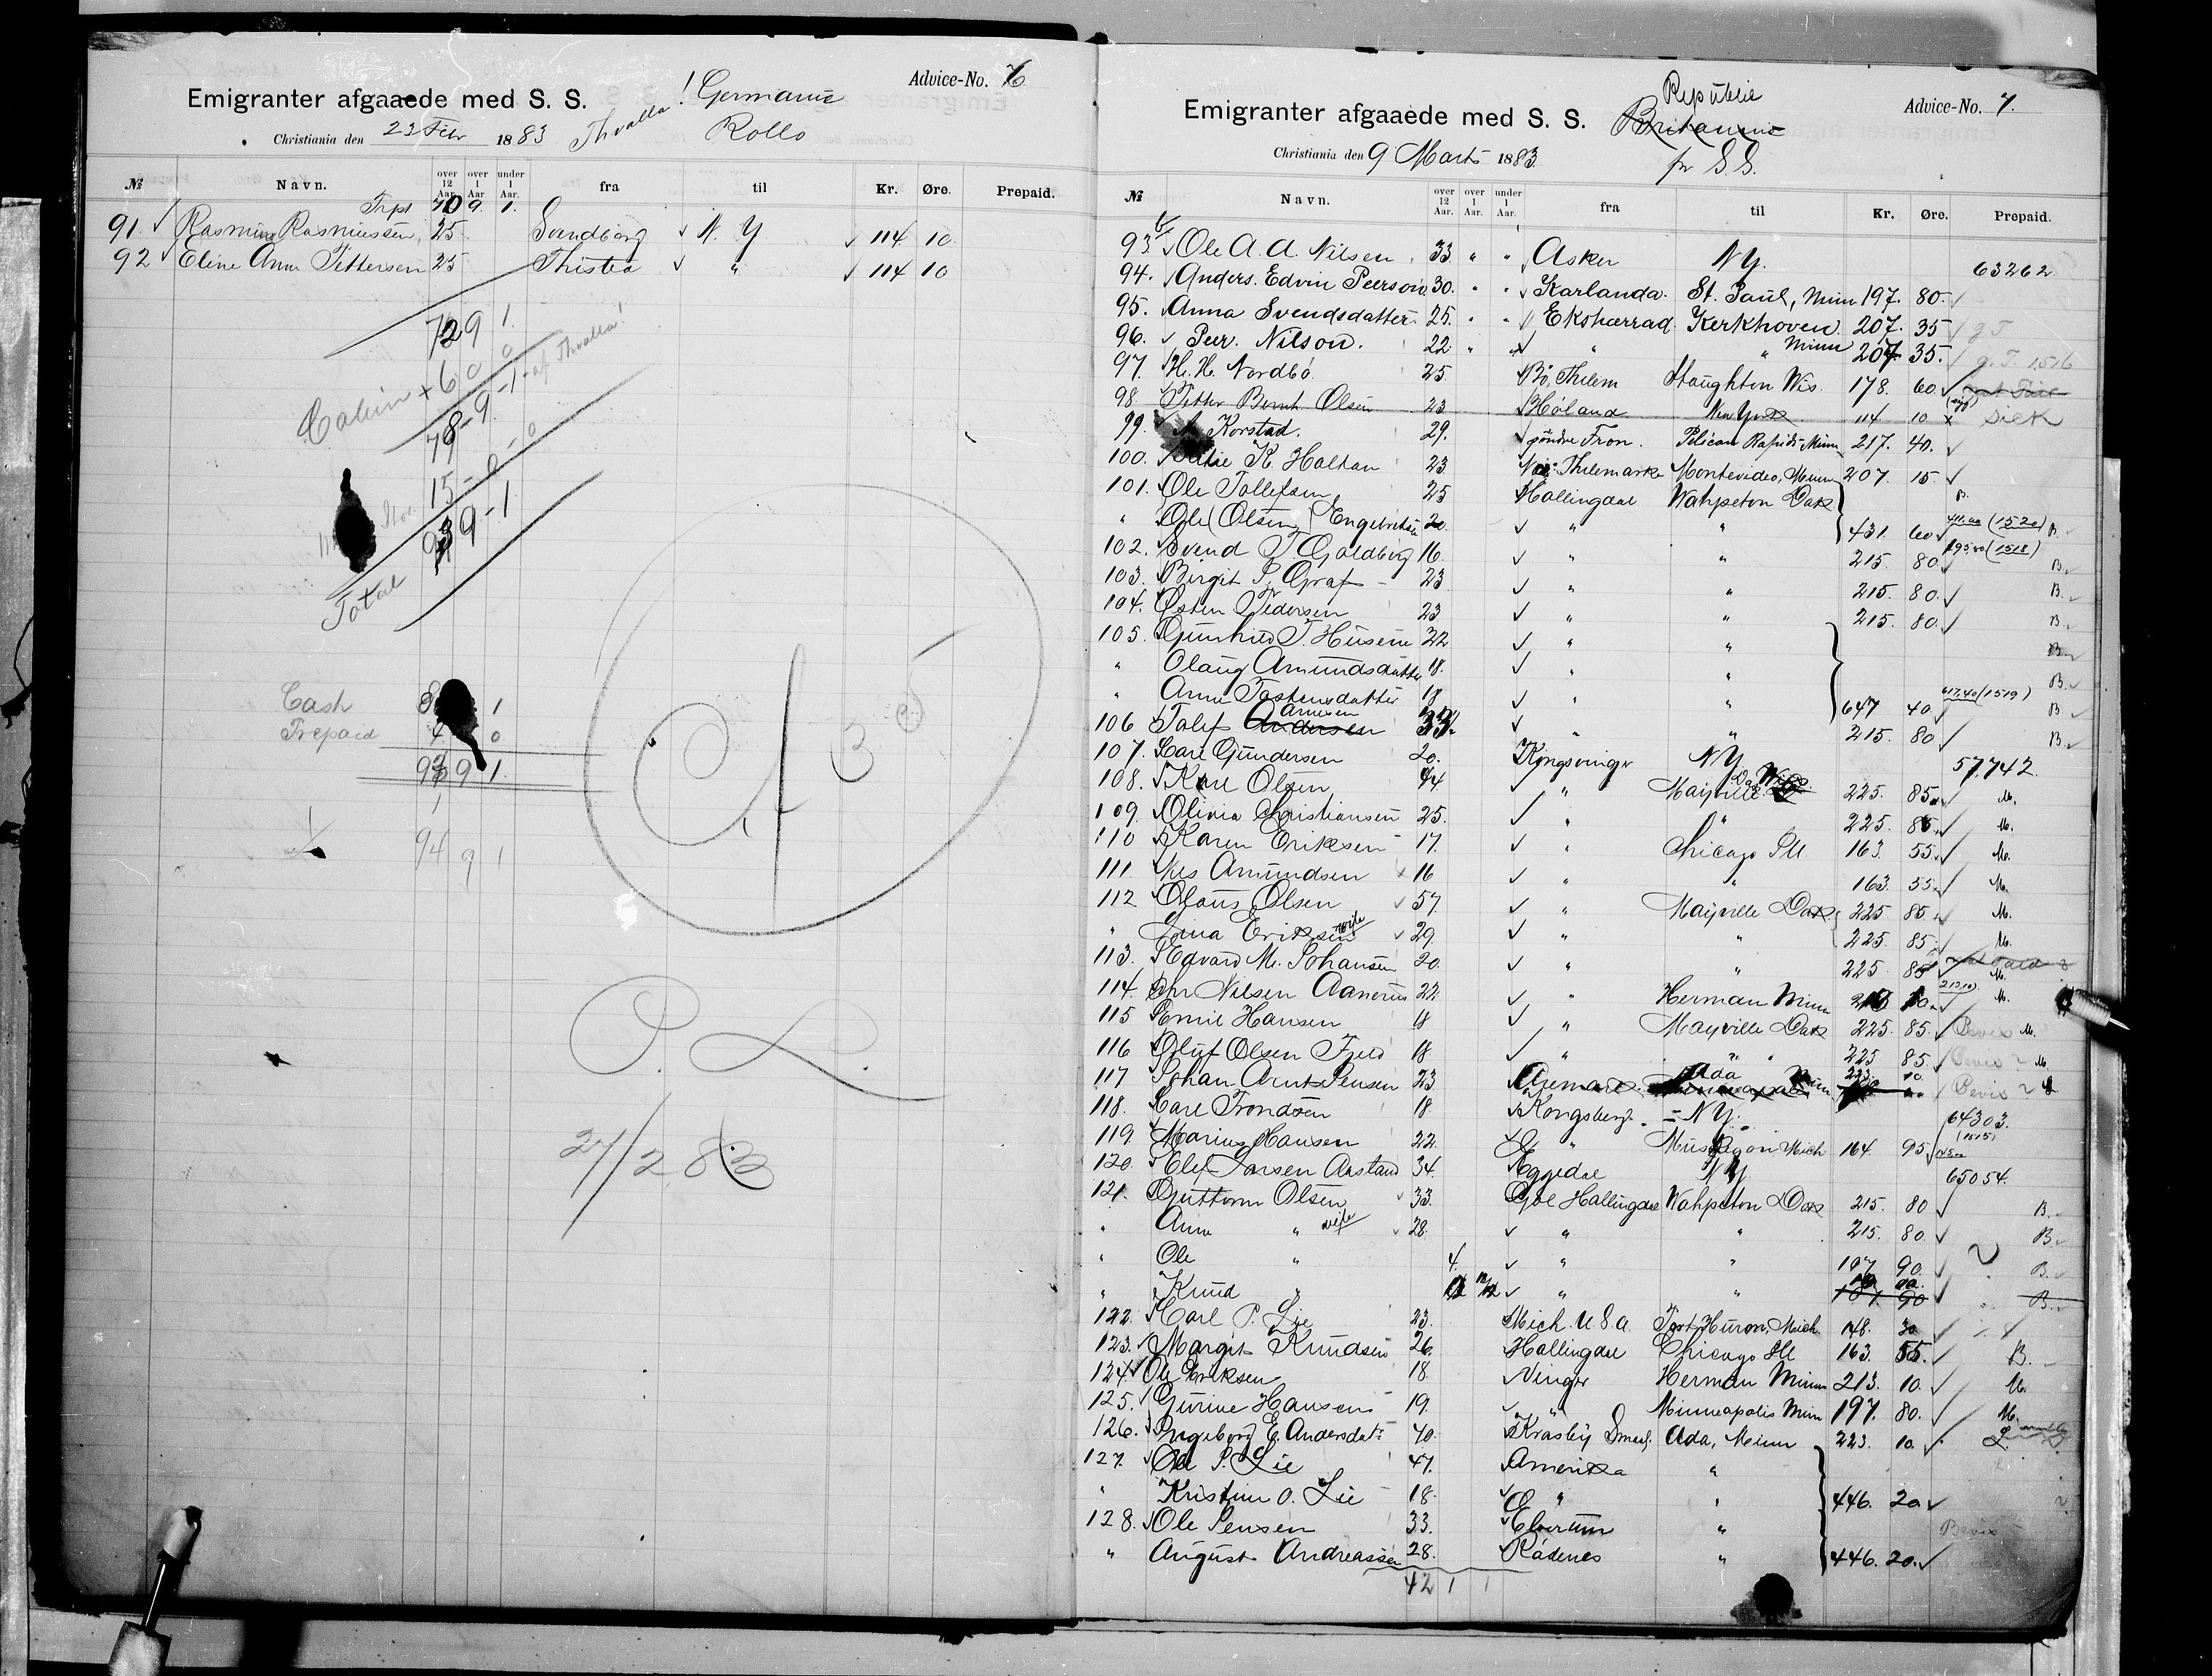 Advice-No. 6
Emigranter afgaaede med S. S. Thvalla! Germanic
Christiania den 23 Febr 1883 Rollo
№ Navn. over 12 Aar. over 1 Aar. under 1 Aar. fra til Kr. Øre. Prepaid.
Trpt 70 9. 1.
91. Rasmine Rasmussen 25 Svendborg N. Y 114 10
92 Eline Anna Pettersen 25 Thisted " 114 10
72 9 1.
Cabin + 6 0 0
78-9-1- af Thvalla!
15-0-0
93 9-1
Total
Cash 1
Prepaid 4 0
93 9 1.
1
94 9 1
O. L.
27/2 83
Advice-No. 7.
Republic
Emigranter afgaaede med S. S. Britannic
Christiania den 9 Marts 1883. pr S. S.
№ Navn. over 12 Aar. over 1 Aar. under 1 Aar. fra til Kr. Øre. Prepaid.
93 Ole A. A. Nilsen 33 " " Asker NY. 63262
94. Anders. Edvin Peerson 30. " " Karlanda. St. Paul, Minn 197. 80.
95. Anna Svendsdatter 25. " " Ekshærrad Kerkhoven 207. 35 g T
96. Peer. Nilson. 22 " " " " Minn 207. 35. g. T. 1516
97. H. H. Nordbö 25 Bö, Thelem Stoughton Wis. 178. 60.
98. Petter Bernt Olsen 23 Höland New York 114 10 x sick
99. Korstad. 29. söndre Fron. Pelican Rapids Minn 217. 40.
100. K. Haltan 23 Thelemarke Montevideo, Minn 207 15
101. Ole Tollefsen 25 Hallingdal Wahpeton Dak
" Ole (Olsen) Engebretsen 20. " " 431. 60 (1520) B.
102. Svend T. Goldberg 16. " " 215. 80 (1518) B.
103. Birgit P. Graf - 23 " " 215. 80. B.
104. Østen Pedersen 23 " " 215. 80. B.
105. Gunhild T. Husene 22 " " B
" Olaug Amundsdatter 18. " " B.
" Anne Tostensdatter 18 " " 647 40 617,40 (1519) B
106 Tolef Andersen Arnesen 33. " " 215. 80 B.
107. Carl Gundersen 20. Kongsvinger NY 57,742
108. Kari Olsen 44 " Mayville Dak 225. 85 M.
109. Olivia Christiansen 25. " " 225. 85 M.
110 Karen Eriksen 17. " Chicago Ill. 163. 55. M.
111. Nils Amundsen 16 " " 163. 55. M.
112 Olaus Olsen 57. " Mayville Dak 225 85 M.
" Lina Eriksen wife 29. " " 225. 85 M.
113. Edvard M. Johansen 20. " " 225. 85 M.
114. Chr Nilsen Aanerud 22 " Herman Minn 213,10 M.
115 Emil Hansen 18 " Mayville Dak 225. 85. Bevis M.
116 Oluf Olsen Fjeld 18 " " " 225 85. Bevis M.
117 Johan Arnt Jensen 23 Aremark Ada Minn 223. 10 Bevis L
118. Carl Trondsen 18. Kongsberg. = NY. 64303.
119. Marius Hansen 22. " Muskegon Mich 164 95 (1515)
120. Elef Larsen Aastad 34. Eggedal NY 65054.
121. Guttorm Olsen 33. Gol Hallingdal Wahpeton Dak 215. 80 B.
" Anne " wife 28. " " 215. 80. B.
" Ole " 4. " " 107 90. B.
" Knud " " " 107. 90 B.
122. Carl P. Lie 23. Mich. U. S. A. Port Huron, Mich. 148. 30
123. Margit Knudsen 26. Hallingdal Chicago Ill 163. 55. B.
124. Ole Eriksen 18. Vinger Herman Minn 213. 10. M.
125. Gurine Hansen 19. " Minneapolis Minn 197. 80. M.
126. Ingeborg E. Andersdat: 40. Kraaby Smaal. Ada, Minn 223. 10. L.
127. Ole P. Lie 47. Amerika "
" Kristine O. Lie 18. " " 446. 20
128. Ole Jensen 33. Elverum " Bevis
" August Andreassen 28. Rödenes " 446. 20.
42 1 1